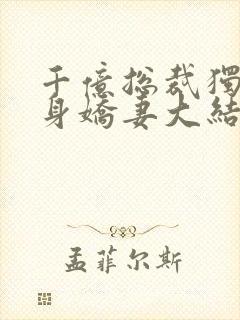 千億总裁獨
身嬌妻大結
孟菲尔斯